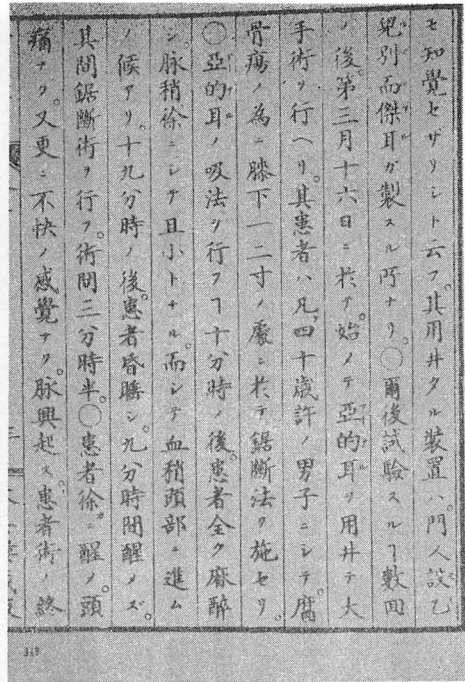 モ知覺セザリシト云フ。其用井タル装置ハ。門人設乙
児別而傑耳ガ製スル所ナリ。〇爾後試驗スルヿ數回
ノ後。第三月十六日ニ於テ。始メテ亞的耳ヲ用井テ大
手術ヲ行ヘリ。其患者ハ凡四十歳許ノ男子ニシテ。腐
骨瘍ノ為ニ膝下一二寸ノ處ニ於テ鋸斷法ヲ施セリ。
〇亞的耳ノ吸法ヲ行フヿ十分時ノ後。患者全ク麻醉
シ。脉稍徐ニシテ且小トナル。而シテ血稍頭部ニ進ム
ノ候アリ。十九分時ノ後。患者昏睡シ。九分時間醒メズ。
其間鋸斷術ヲ行フ。術間三分時半。〇患者徐ニ醒メ。頭
痛ナク。又更ニ不快ノ感覺ナク。脉興起ス。患者術ノ終
349